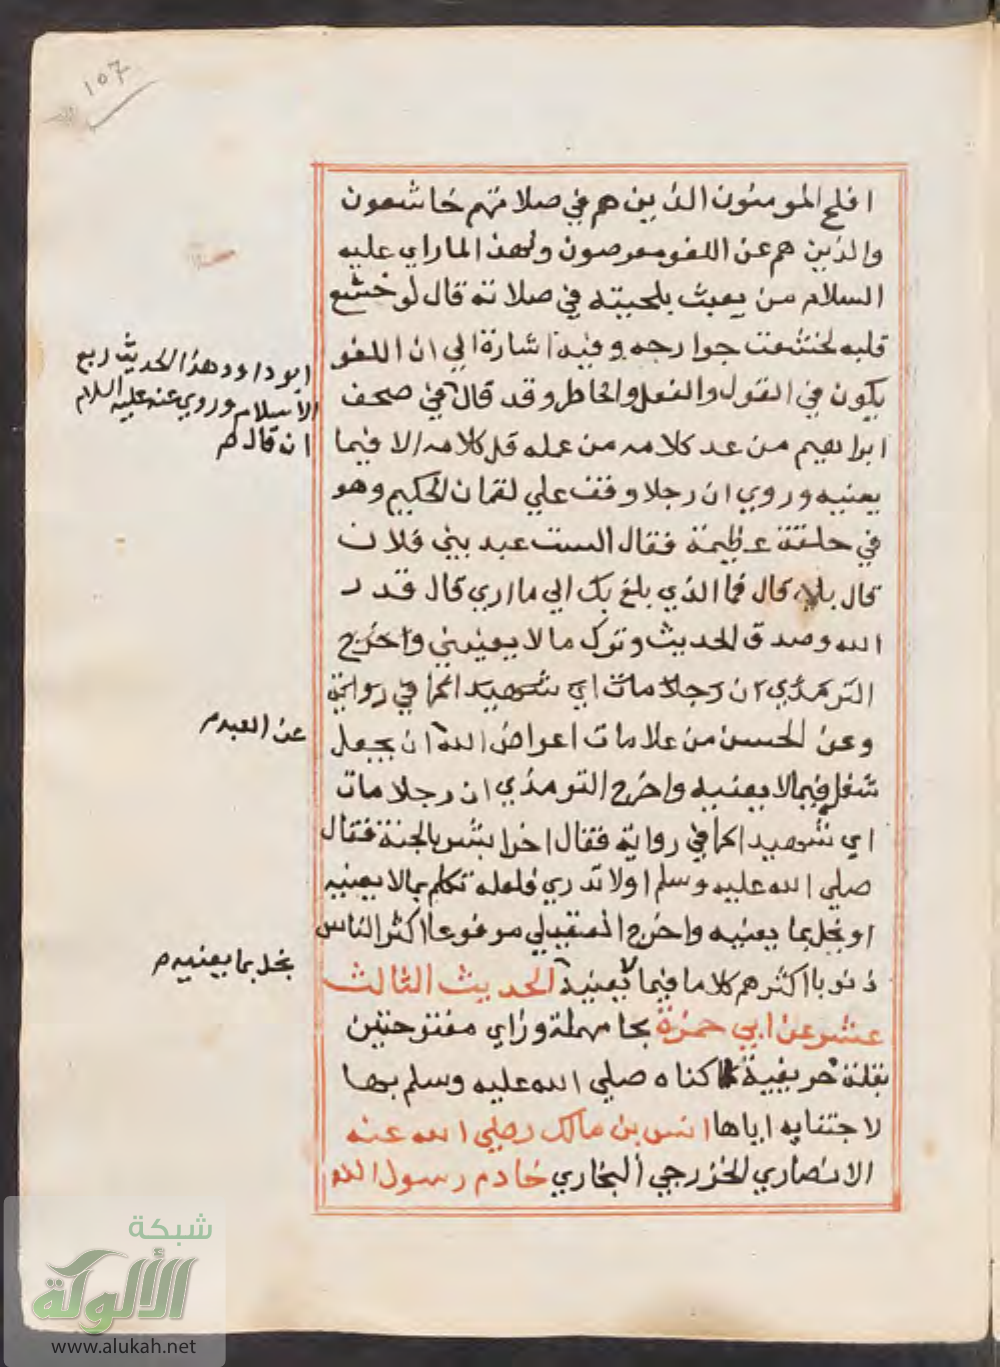 ١٥٧
افلح المومنون الذين هم في صلاتهم خاشعون
والذين هم عن اللغو معرضون ولهذا لما راي عليه
السلام من يعبث بلحيته في صلاته قال لو خشع
قلبه لخشعت جوارحه وفيه اشارة الي ان اللغو
يكون في القول والفعل والخاطر وقد قال في صحف
ابراهيم من عد كلامه من عمله قل كلامه الا فيما
يعنيه وروي ان رجلا وقف علي لقمان الحكيم وهو
في حلقة عظيمة فقال الست عبد بني فلان
قال بلي قال فما الذي بلغ بك الي ما اري قال قدر
الله وصدق الحديث وترك ما لا يعنيني واخرج
الترمذي ان رجلا مات اي شهيدا كما في رواية
وعن الحسن من علامات اعراض الله ان يجعل
شغله فيما لا يعنيه واخرج الترمذي ان رجلا مات
اي شهيدا كما في رواية فقال اخر ابشر بالجنة فقال
صلي الله عليه وسلم اولا تدري فلعله تكلم بما لا يعنيه
او بخل بما يعنيه واخرج العقيلي مرفوعا اكثر الناس
ذنوبا اكثرهم كلاما فيما لا يعنيه الحديث الثالث
عشر عن ابي حمزة بحا مهملة وزاي مفتوحتين
بقلة حريفية كناه صلي الله عليه وسلم بها
لاجتنايه اياها انس بن مالك رضي الله عنه
الانصاري الخزرجي البخاري خادم رسول الله
ابو داوود هذا الحديث ربع
الاسلام وروي عنه عليه السلام
انه قال م
عن العبد م
بخل بما يعنيه م
شبكة
الألوكة
www.alukah.net